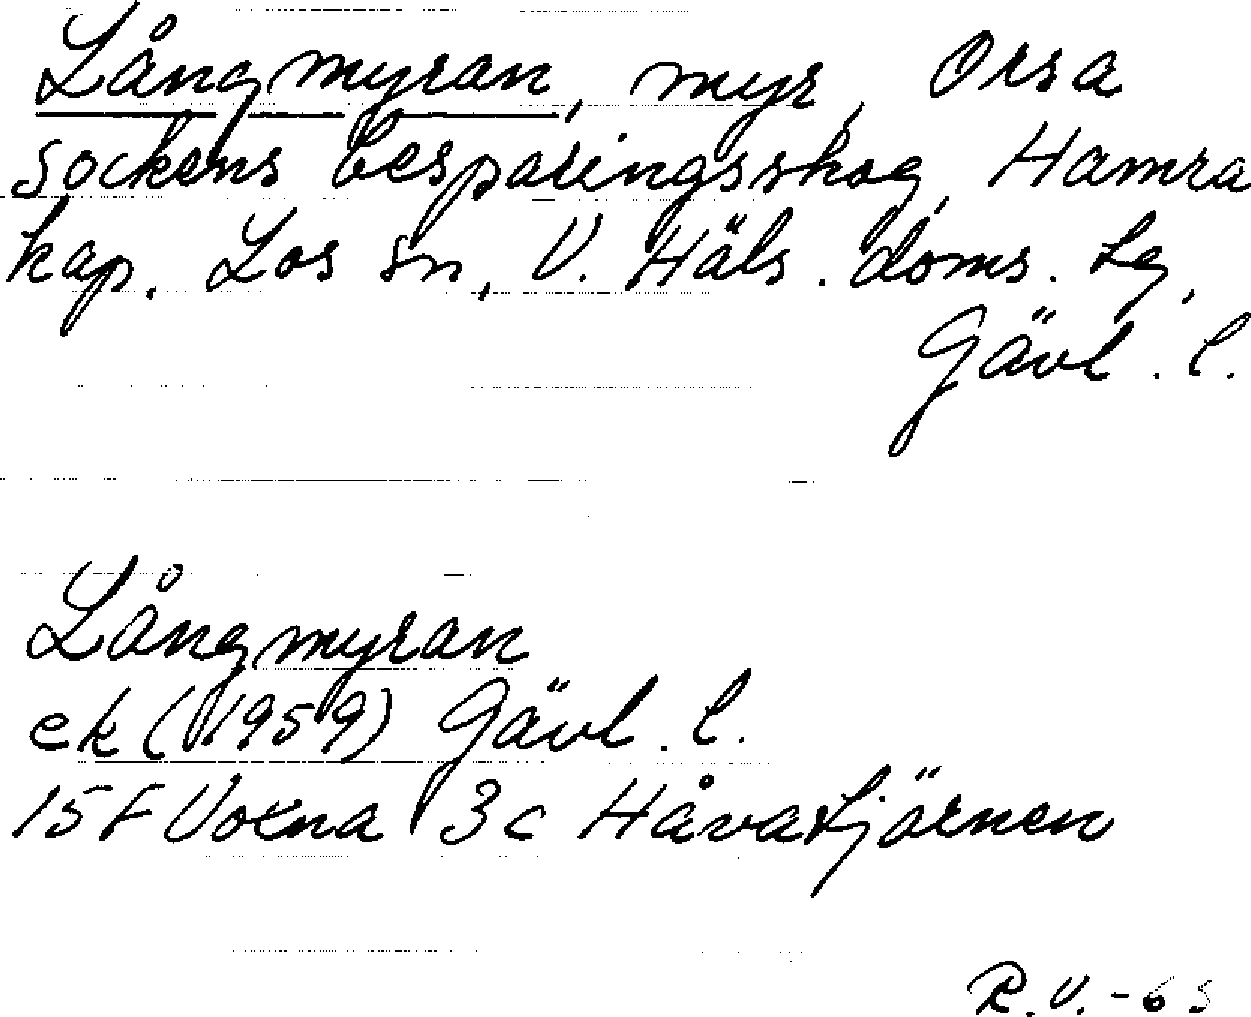 Långmyran, myr, Orsa
sockens besparingsskog, Hamra
kap. Los sn, V. Häls. doms. tg,
Gävl. l.
Långmyran
ek (1959) Gävl. l.
15F Voxna 3c Håvatjärnen
R.V.-63